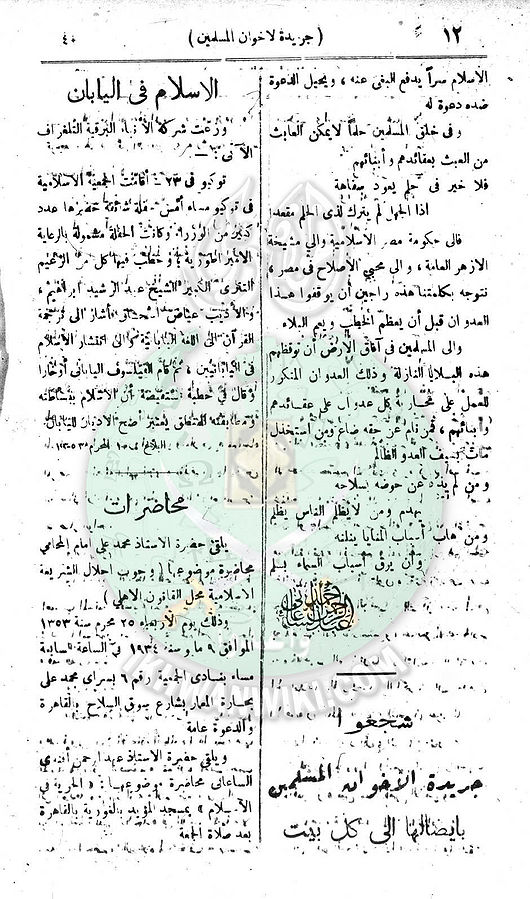 ١٢
( جريدة لاخوان المسلمين )
٤٠
الاسلام سراً يدفع البغى عنه ، ويحيل الدعوة
ضده دعوة له
وفى خلق المسلمين حلماً لا يمكن العابث
من العبث بعقائدهم وأبنائهم
فلا خير فى حلم يعود سفاهة
اذا الجهل لم يترك لذى الحلم مقعدا
فالى حكومة مصر الاسلامية والى مشيخة
الازهر العامة ، والى محبي الاصلاح فى مصر ،
نتوجه بكلمتنا هذه راجين أن يوقفوا هذا
العدوان قبل أن يعظم الخطب ويعم البلاء
والى المسلمين فى آفاق الارض أن توقظهم
هذه السلايا النازلة وذلك العدوان المتكرر
للعمل على محاربة كل عدوان على عقائدهم
وأبنائهم ، فمن نام عن حقه ضاع ومن استخذل
مات بسيف العدو الظالم
ومن لم يذد عن حوضه بسلاحه
يهدم ومن لا يظلم الناس يظلم
ومن هاب أسباب المنايا ينلنه
وان يرق أسباب السماء بسلم
عبد الرحمن الساعاتى
شجعوا
جريدة الاخوان المسلمين
بايصالها الى كل بيت
الاسلام فى اليابان
وزعت شركة الأنباء البرقية التلغراف
الآتى :
توكيو فى ٢٣ – أقامت الجمعية الاسلامية
فى توكيو مساء أمس حفلة شائقة حضرها عدد
كبير من الوزراء وكانت الحفلة مشمولة بالرعاية
وخطب فيها كل من الزعيم
التترى الكبير الشيخ عبد الرشيد ابراهيم ،
والأديب عياض اسحاق وأشار الى ترجمة
القرآن الى اللغة اليابانية والى انتشار الاسلام
فى اليابانيين ، ثم قام الفيلسوف اليابانى
وقال فى خطبة مستفيضة أن الاسلام ببساطته
ومطابقته للمنطق يعتبر أصح الاديان لليابان.
محاضرات
يلقى حضرة الاستاذ محمد على امام المحامي
محاضرة موضوعها ( وجوب احلال الشريعة
الاسلامية محل القانون الاهلى )
وذلك يوم الأربعاء ٢٥ محرم سنة ١٣٥٣
الموافق ٩ مايو سنة ١٩٣٤ فى الساعة السابعة
مساء بنادى الجمعية رقم ٦ بسراى محمد على
بحارة المعمار بشارع سوق السلاح بالقاهرة
والدعوة عامة
ويلقى حضرة الاستاذ عبد الرحمن أفندى
الساعاتى محاضرة موضوعها : « الحرية فى
الاسلام » بمسجد المؤيد بالغورية بالقاهرة
بعد صلاة الجمعة
IKHWANWIKI.COM